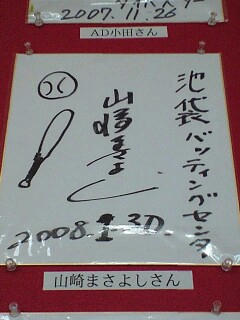 2007.11.26
AD小田さん
池袋バッティングセンター
山崎まさよし
2008.1.30
山崎まさよしさん